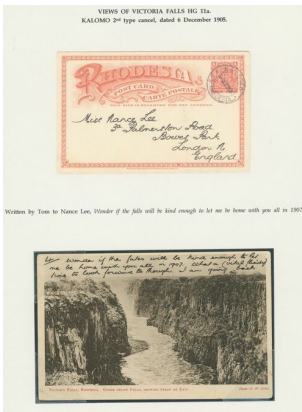 VIEWS OF VICTORIA FALLS HG 11a.
KALOMO 2nd type cancel, dated 6 December 1905.
RHODESIA
POST CARD
CARTE POSTALE
Miss Nance Lee
Palmerston Road
Bowes Park
London N
England
Written by Tom to Nance Lee, Wonder if the falls will be kind enough to let me be home with you all in 1907
wonder if the fates will be kind enough to let
me be home with you all in 1907. What a
time to look forward to though. I am going back